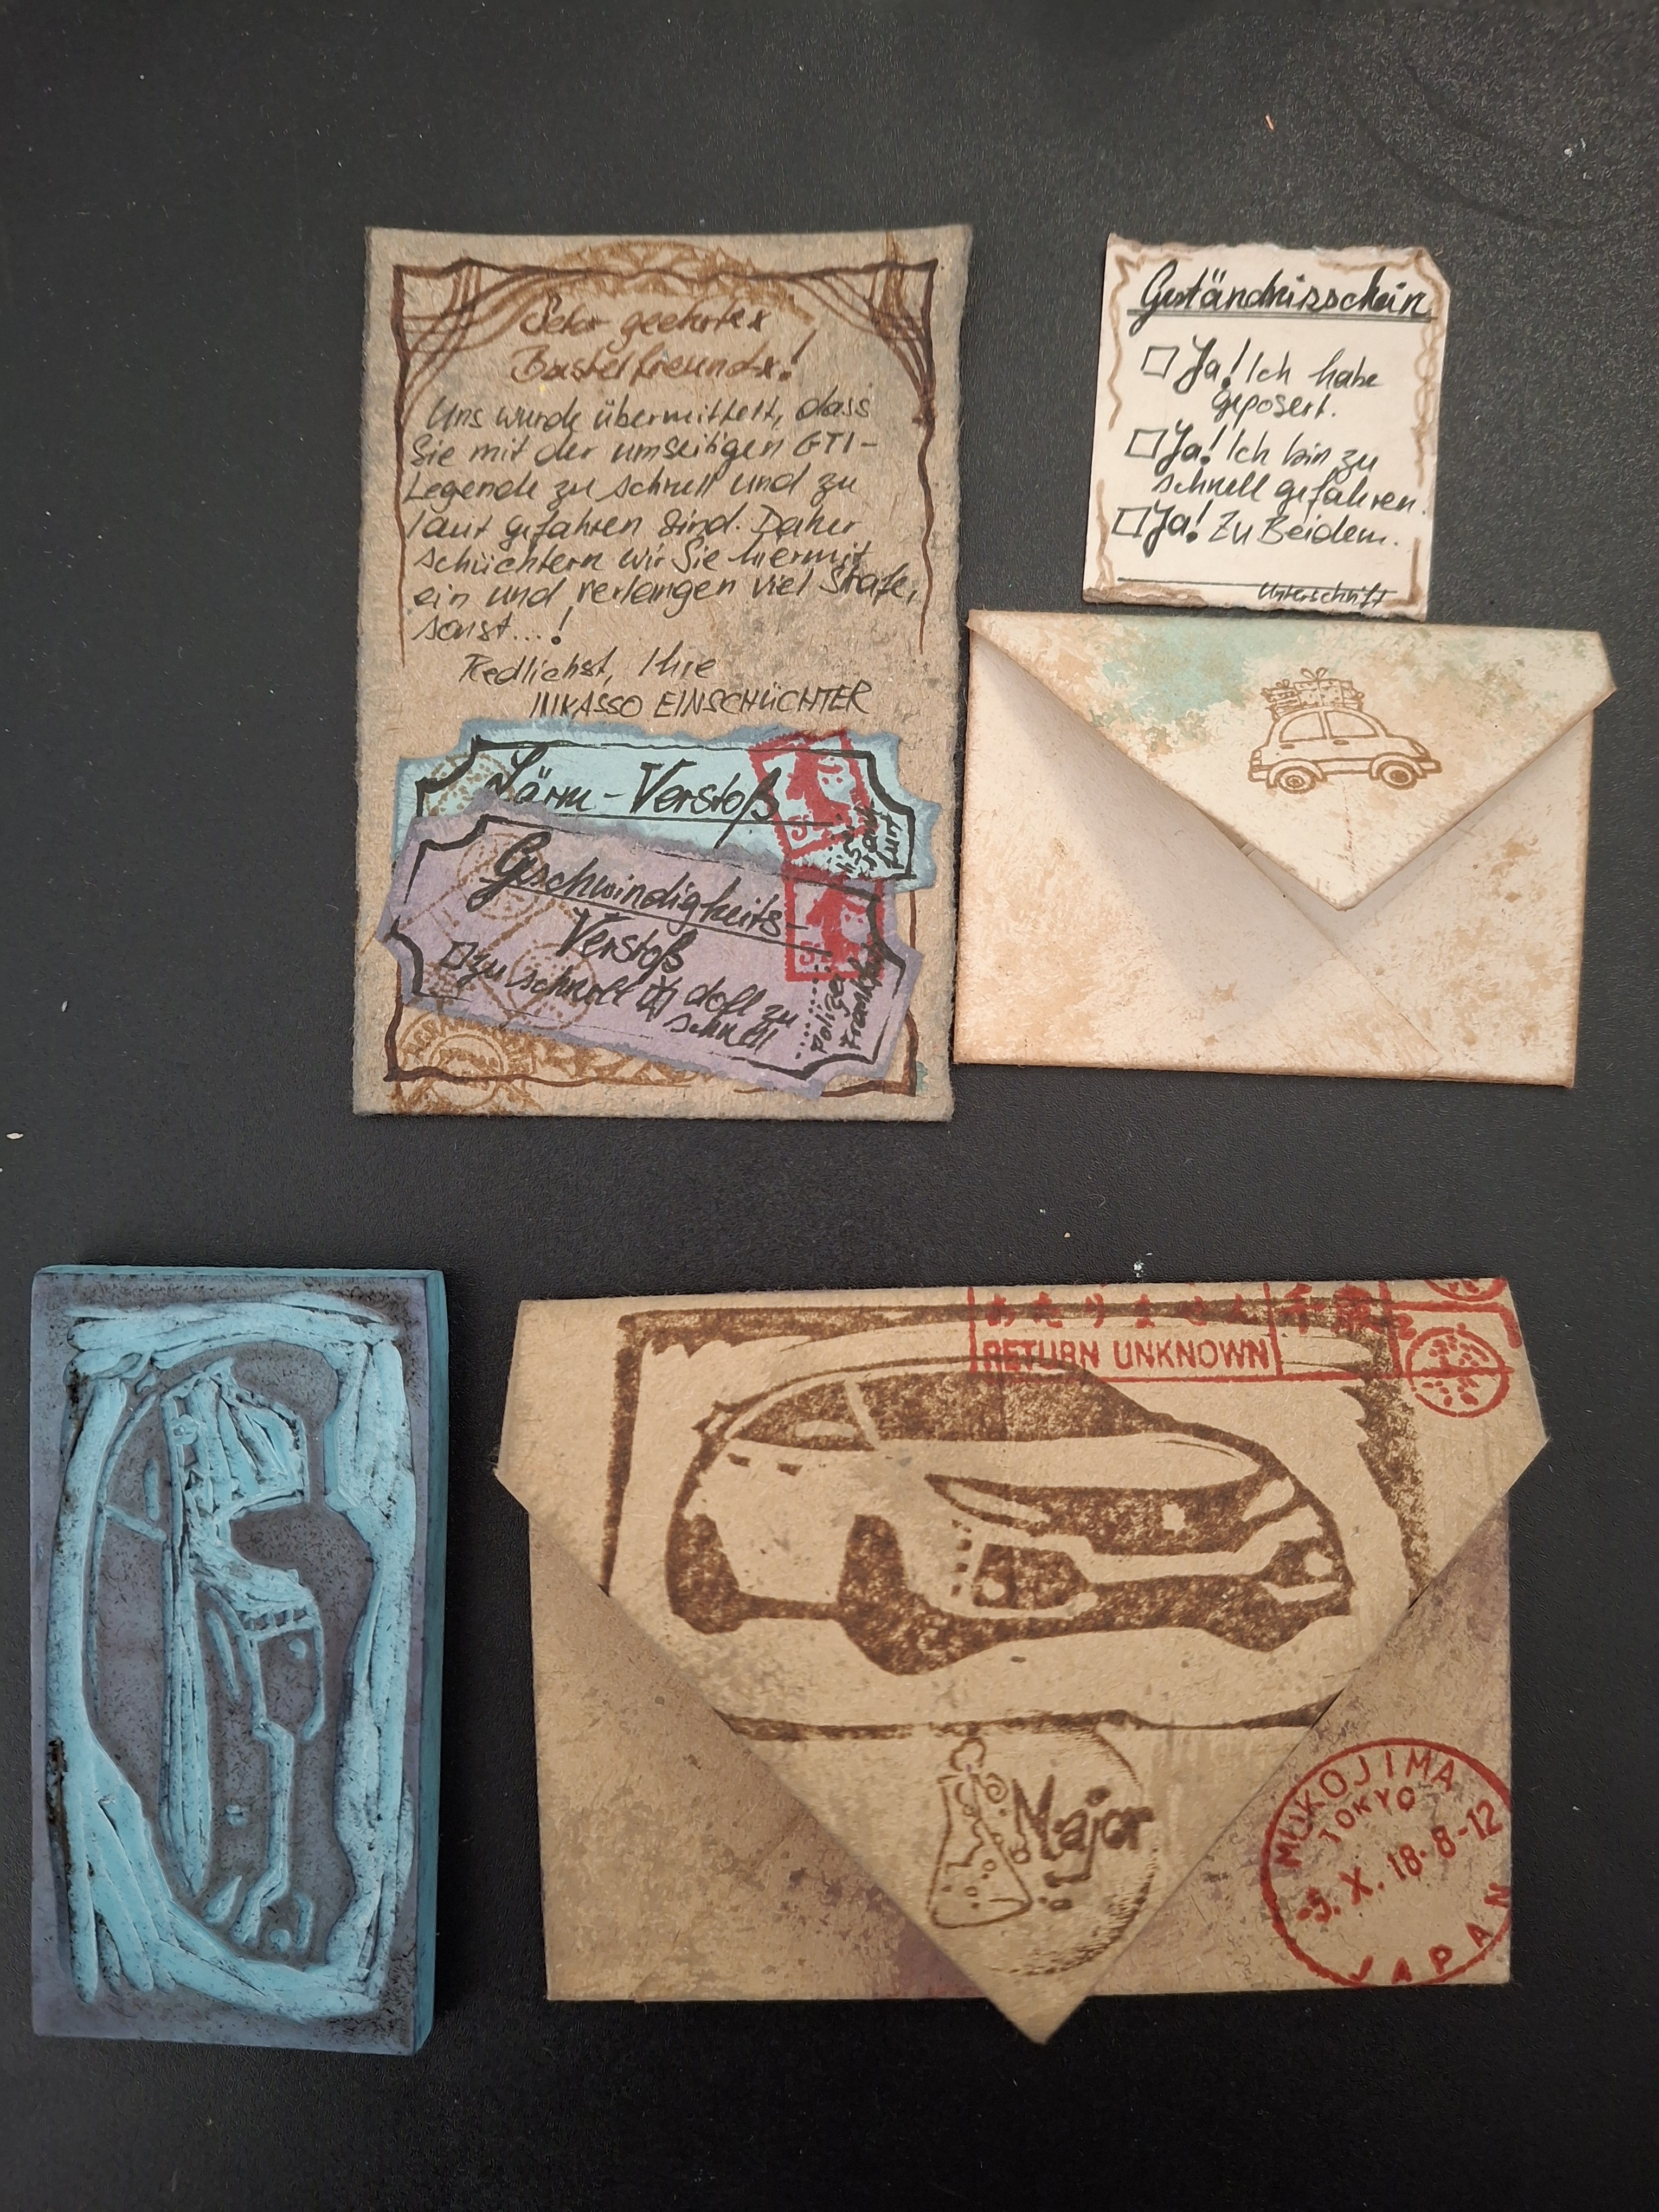 Sehr geehrtex
Bastelfreundx!
Uns wurde übermittelt, dass
Sie mit der umseitigen GTI-
Legende zu schnell und zu
laut gefahren sind. Daher
schüchtern wir Sie hiermit
ein und verlangen viel Strafe,
sonst...!
Redlichst, Ihre
INKASSO EINSCHÜCHTER
Lärm-Verstoß
Geschwindigkeits-
Verstoß
zu schnell doll zu
schnell
Polizei
Frankfurt
Geständnisschein
Ja! Ich habe
geposert.
Ja! Ich bin zu
schnell gefahren.
Ja! Zu Beidem.
Unterschrift
あたりません
RETURN UNKNOWN
Major
MUKOJIMA
TOKYO
-5. X. 18. 8-12
JAPAN